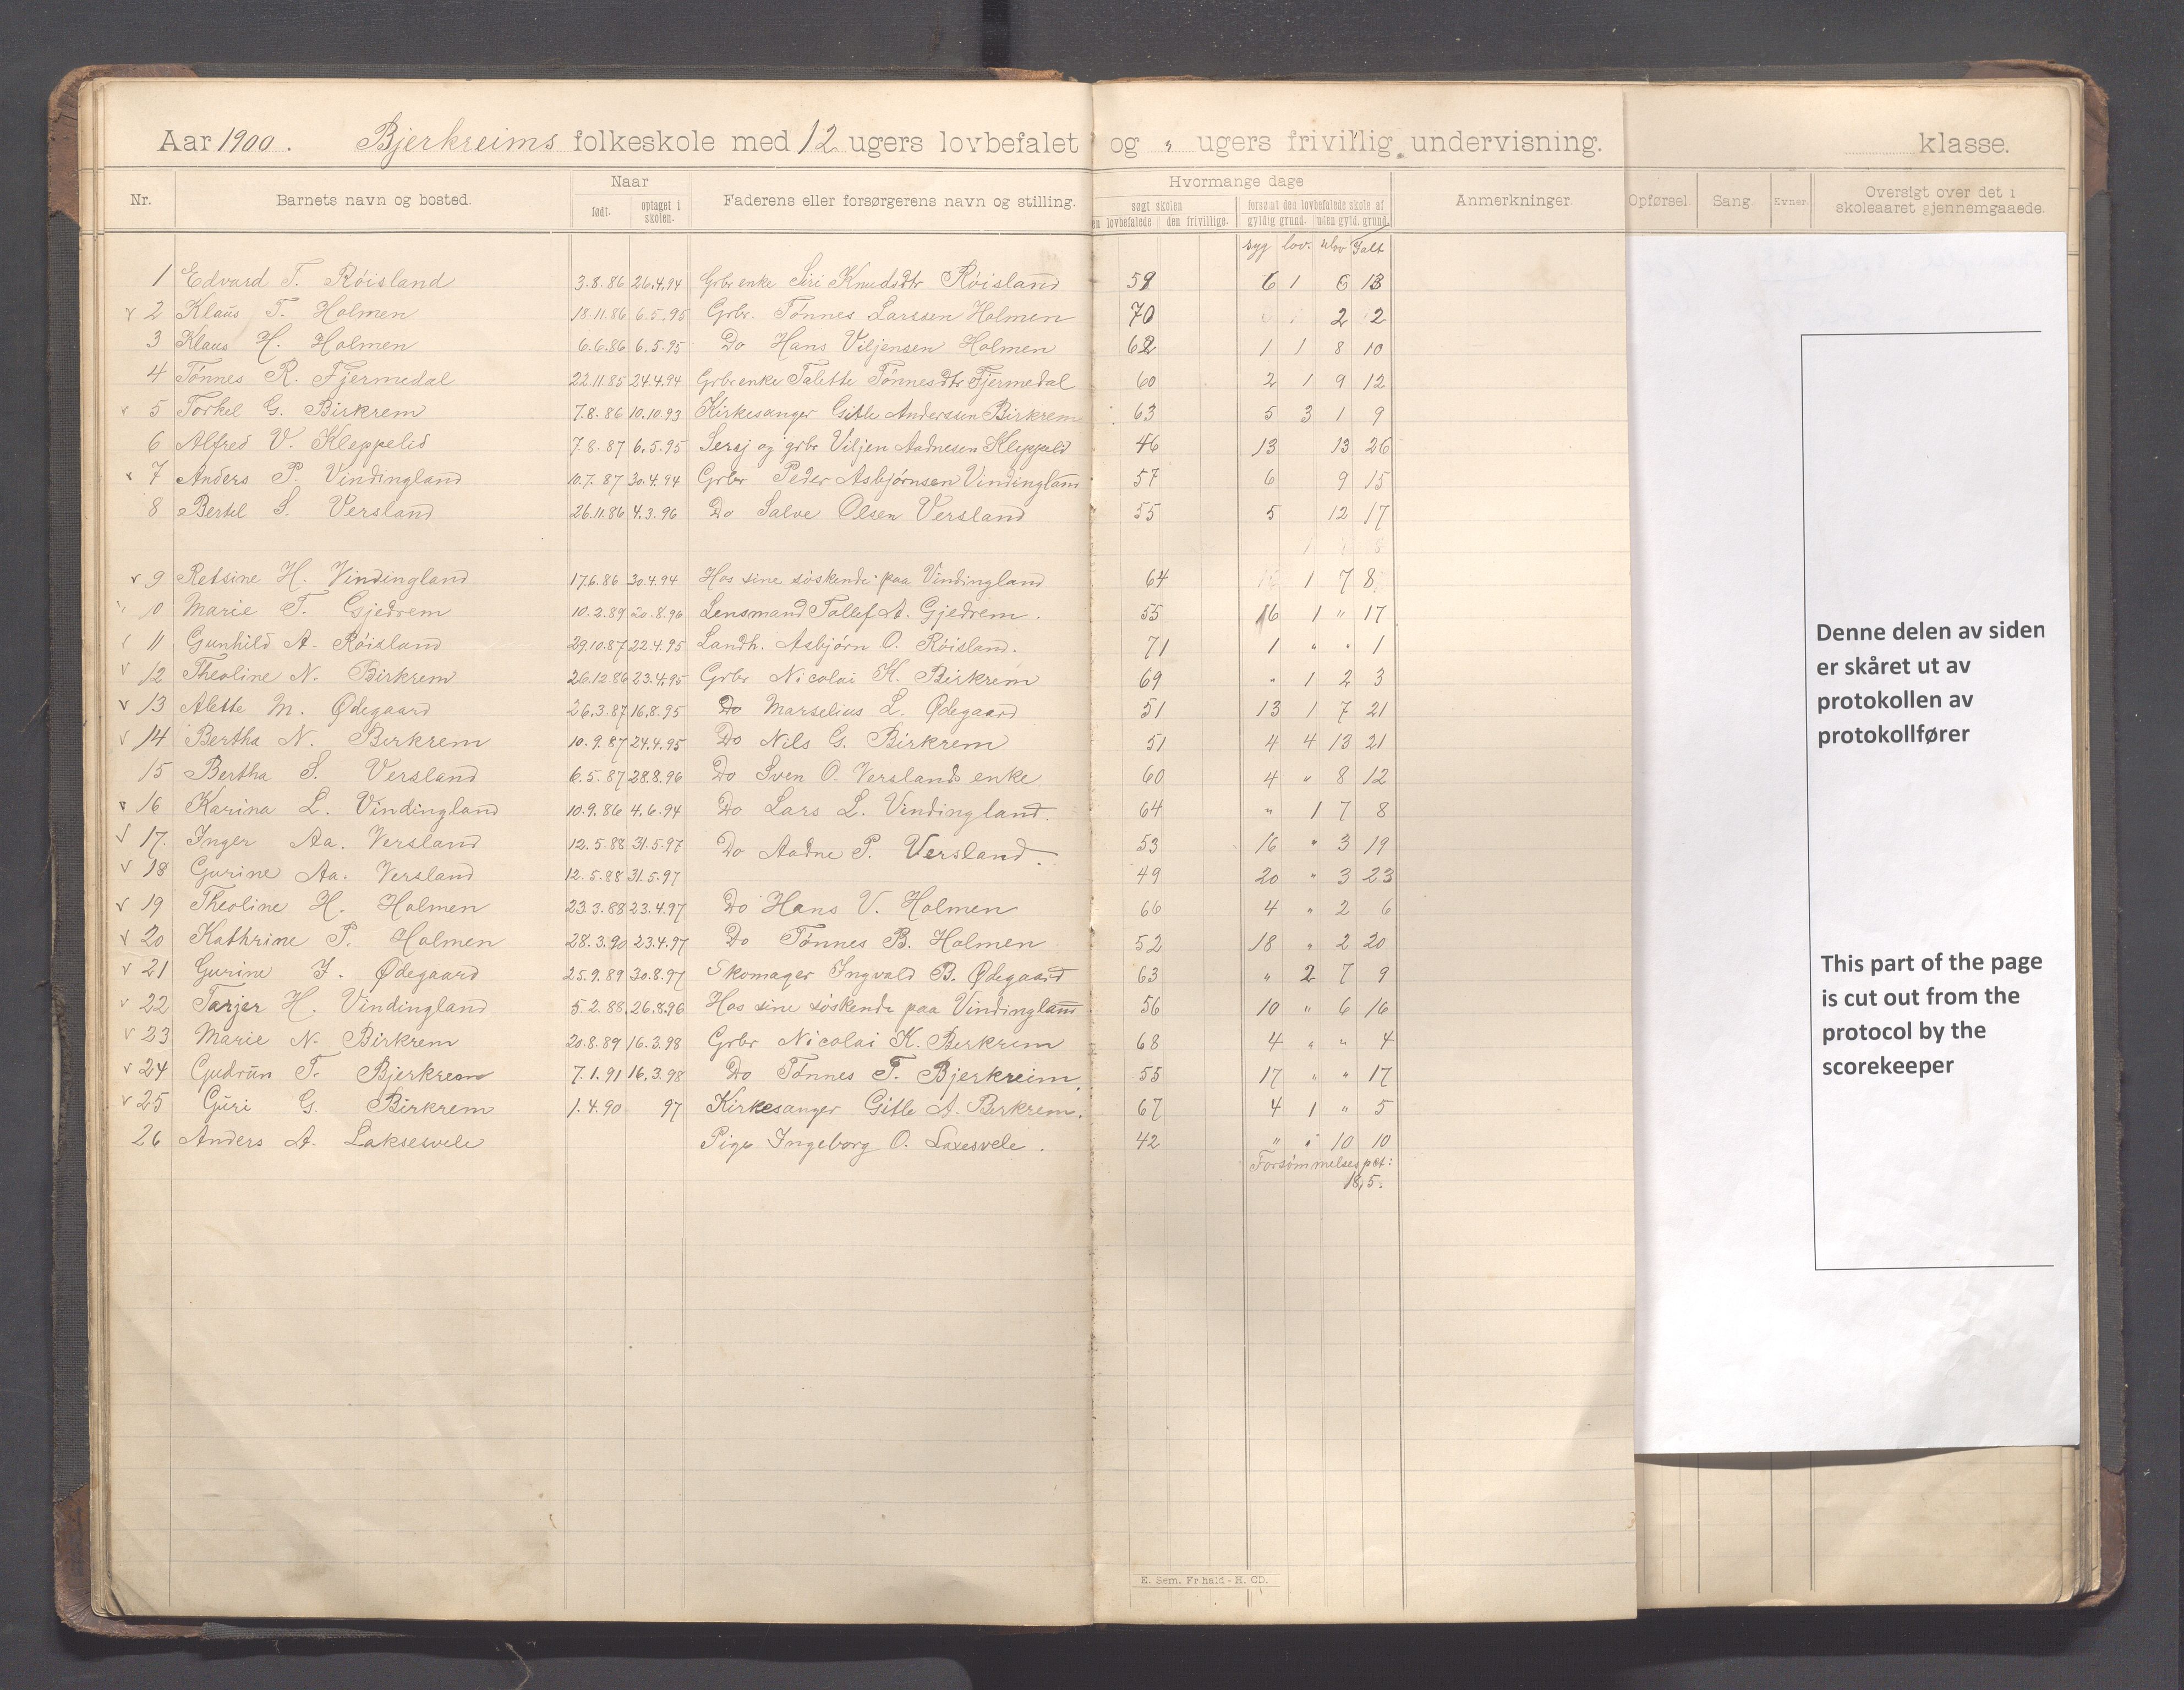 Aar 1900. Bjerkreims folkeskole med 12 ugers lovbefalet og " ugers frivillig undervisning. klasse.
Nr. Barnets navn og bosted. Naar født. optaget i skolen. Faderens eller forsørgerens navn og stilling. Hvormange dage søgt skolen den lovbefalede den frivillige. forsømt den lovbefalede skole af gyldig grund. uden gyld. grund. Anmerkninger. Opførsel. Sang. Evner. Oversigt over det i skoleaaret gjennemgaaede.
syg lov. ulov Ialt
1 Edvard T. Röisland 3.8.86 26.4.94 Grbr enke Siri Knudsdtr Röisland 59 6 1 6 13
v 2 Klaus T. Holmen 18.11.86 6.5.95 Grbr. Tönnes Larssen Holmen 70 2 2
3 Klaus H. Holmen 6.6.86 6.5.95 Do Hans Viljensen Holmen 62 1 1 8 10
4 Tönnes R. Fjermedal 22.11.85 24.4.94 Grbr enke Talette Tönnesdtr Fjermedal 60 2 1 9 12
v 5 Torkel G. Birkrem 7.8.86 10.10.93 Kirkesanger Gitle Anderssen Birkrem 63 5 3 1 9
6 Alfred V. Kleppelid 7.8.87 6.5.95 Sersj og grbr Viljen Aadnesen Kleppelid 46 13 13 26
v 7 Anders P. Vindingland 10.7.87 30.4.94 Grbr Peder Asbjørnsen Vindingland 57 6 9 15
8 Bertel S. Versland 26.11.86 4.3.96 Do Salve Olsen Versland 55 5 12 17
v 9 Retsine H. Vindingland 17.6.86 30.4.94 Hos sine söskende paa Vindingland 64 1 7 8
10 Marie T. Gjedrem 10.2.89 20.8.96 Lensmand Tollef A. Gjedrem. 55 16 1 " 17
11 Gunhild A. Röisland 29.10.87 22.4.95 Landh. Asbjørn O. Röisland. 71 1 " " 1
v 12 Theoline N. Birkrem 26.12.86 23.4.95 Grbr Nicolai K. Birkrem 69 " 1 2 3
v 13 Alette M. Ødegaard 26.3.87 16.8.95 Do Marselius L. Ødegaard 51 13 1 7 21
v 14 Bertha N. Birkrem 10.9.87 24.4.95 Do Nils G. Birkrem 51 4 4 13 21
15 Bertha S. Versland 6.5.87 28.8.96 Do Sven O. Verslands enke 60 4 " 8 12
v 16 Karina L. Vindingland 10.9.86 4.6.94 Do Lars L. Vindingland. 64 " 1 7 8
v 17. Inger Aa. Versland 12.5.88 31.5.97 Do Aadne P. Versland. 53 16 " 3 19
v 18 Gurine Aa. Versland 12.5.88 31.5.97 49 20 " 3 23
v 19 Theoline H. Holmen 23.3.88 23.4.97 Do Hans V. Holmen 66 4 " 2 6
v 20 Kathrine T. Holmen 28.3.90 23.4.97 Do Tönnes B. Holmen 52 18 " 2 20
v 21 Gurine I. Ødegaard 25.9.89 30.8.97 Skomager Ingvald B. Ødegaard 63 " 2 7 9
v 22 Tarjer H. Vindingland 5.2.88 26.8.96 Hos sine söskende paa Vindingland 56 10 " 6 16
v 23 Marie N. Birkrem 20.8.89 16.3.98 Grbr Nicolai K. Berkrem 68 4 " " 4
v 24 Gudrün T. Bjerkrem 7.1.91 16.3.98 Do Tönnes T. Bjerkreim. 55 17 " " 17
v 25 Guri G. Birkrem 1.4.90 97 Kirkesanger Gitle A. Berkrem. 67 4 1 " 5
26 Anders A. Laksesvele Pige Ingeborg O. Laxesvele. 42 " " 10 10
Forsömmelsespct:
18,5.
E. Sem. Fr.hald - H. CD.
Denne delen av siden
er skåret ut av
protokollen av
protokollfører
This part of the page
is cut out from the
protocol by the
scorekeeper